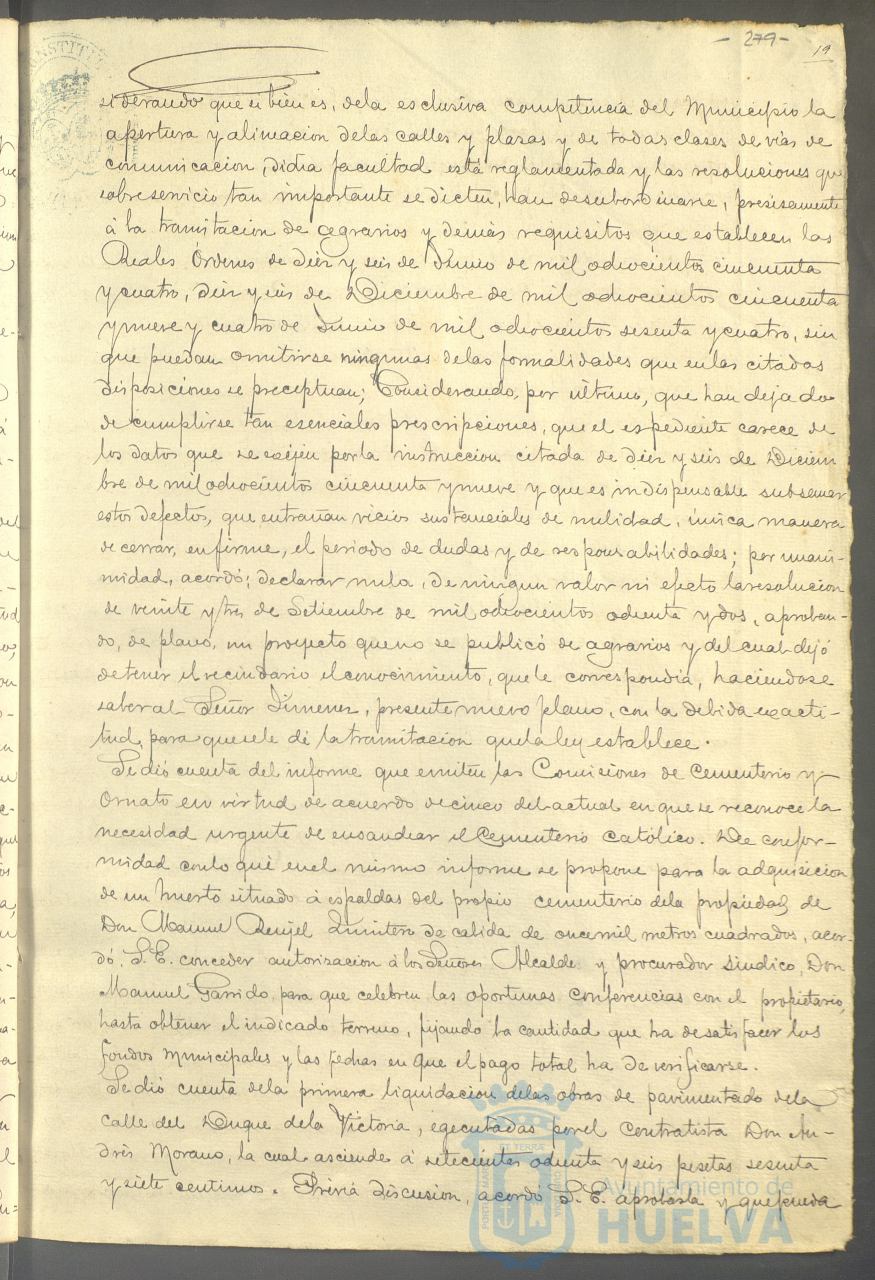 - 279 -
19
siderando que si bien es, dela esclusiva competencia del Municipio la
apertura y alineacion delas calles y plazas y de todas clases de vias de
comunicacion, dicha facultad está reglamentada y las resoluciones que
sobre servicio tan importante se dicten, han de subordinarse, presisamente
á la tramitacion de agrarios y demás requisitos que establecen las
Reales Órdenes de diez y seis de Junio de mil ochocientos cincuenta
y cuatro, diez y seis de Diciembre de mil ochocientos cincuenta
y nueve y cuatro de Junio de mil ochocientos sesenta y cuatro, sin
que puedan omitirse ningunas delas formalidades que en las citadas
disposiciones se preceptuan; Considerando, por último, que han dejado
de cumplirse tan esenciales prescripciones, que el espediente carece de
los datos que se exijen por la instruccion citada de diez y seis de Diciem
bre de mil ochocientos cincuenta y nueve y que es indispensable subsanar
estos defectos, que entrañan vicios sustanciales de nulidad, única manera
de cerrar, en firme, el periodo de dudas y de responsabilidades; por unani-
midad, acordó; declarar nula, de ningun valor ni efecto la resolucion
de veinte y tres de Setiembre de mil ochocientos ochenta y dos, aproban-
do, de plano, un proyecto que no se publicó de agrarios y del cual dejó
de tener el vecindario el conocimiento, que le correspondia, haciendose
saber al Señor Jimenez, presente nuevo plano, con la debida exacti-
tud, para que se le dé la tramitacion que la ley establece.
Se dió cuenta del informe que emiten las Comisiones de Cementerio y
Ornato en virtud de acuerdo de cinco del actual en que se reconoce la
necesidad urgente de ensanchar el Cementerio Católico. De confor-
midad con lo que en el mismo informe se propone para la adquisicion
de un huerto situado á espaldas del propio cementerio dela propiedad de
Don Manuel Quintero de cabida de once mil metros cuadrados, acor-
dó, S. E. conceder autorizacion á los Señores Alcalde y procurador Sindico, Don
Manuel Garrido, para que celebren las oportunas conferencias con el propietario,
hasta obtener el indicado terreno, fijando la cantidad que ha de satisfacer los
fondos municipales y las fechas en que el pago total ha de verificarse.
Se dió cuenta dela primera liquidacion delas obras de pavimentado dela
calle del Duque dela Victoria, egecutadas por el contratista Don An-
drés Morano, la cual asciende á setecientas ochenta y seis pesetas sesenta
y siete centimos. Previa discusion, acordó S. E. aprobarla y que pueda
Ayuntamiento de
HUELVA